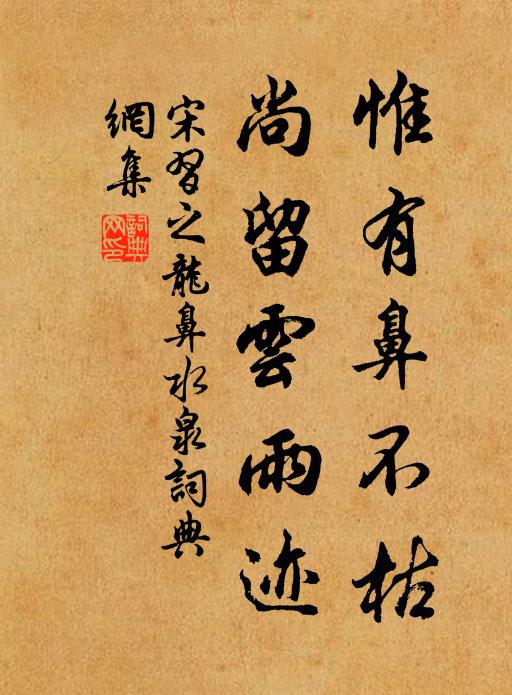 惟有鼻不枯
尚留雲雨迹
宋習之龍鼻水泉詞典
網集
詞典网印